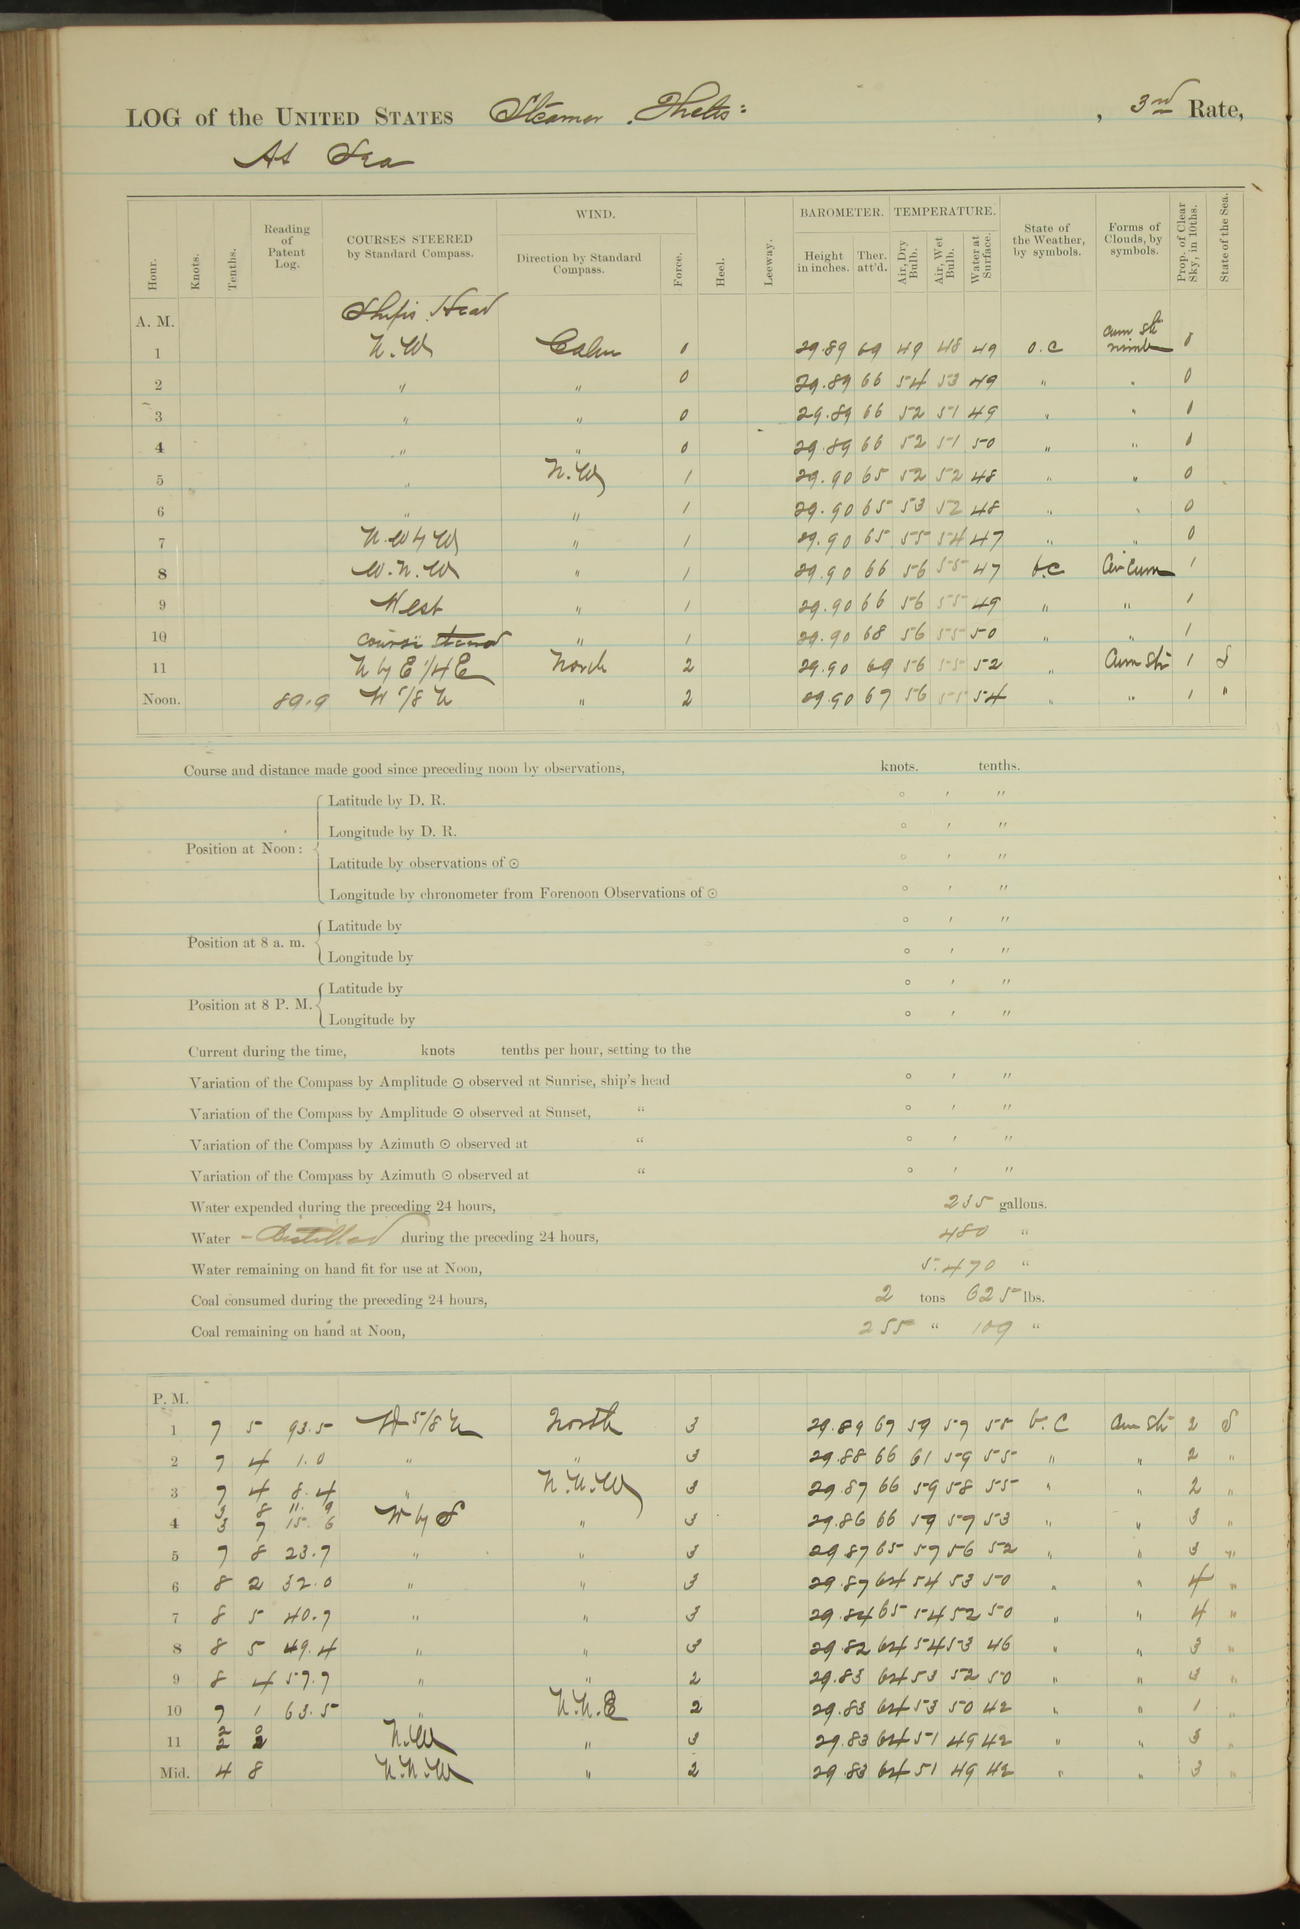 LOG of the UNITED STATES Steamer Thetis: , 3rd Rate,
At Sea
Hour. Knots. Tenths. Reading of Patent Log. COURSES STEERED by Standard Compass. WIND. Direction by Standard Compass. Force. Heel. Leeway. BAROMETER. Height in inches. Ther. att'd. TEMPERATURE. Air, Dry Bulb. Air, Wet Bulb. Water at Surface. State of the Weather, by symbols. Forms of Clouds, by symbols. Prop. of Clear Sky, in 10ths. State of the Sea.
A. M. Ship's Head
1 N.W Calm 0 29.89 69 49 48 49 o.c cum str nimb 0
2 " " 0 29.89 66 54 53 49 " " 0
3 " " 0 29.89 66 52 51 49 " " 0
4 " " 0 29.89 66 52 51 50 " " 0
5 " N.W 1 29.90 65 52 52 48 " " 0
6 " " 1 29.90 65 53 52 48 " " 0
7 N.W by W " 1 29.90 65 55 54 47 " " 0
8 W.N.W " 1 29.90 66 56 55 47 b.c Cir Cum 1
9 West " 1 29.90 66 56 55 49 " " 1
10 course " 1 29.90 68 56 55 50 " " 1
11 N by E 1/4 E North 2 29.90 69 56 55 52 " Cum Str 1 S
Noon. 89.9 W 5/8 N " 2 29.90 67 56 55 54 " " 1 "
Course and distance made good since preceding noon by observations, knots. tenths.
Position at Noon: Latitude by D. R. ° ′ ″
Longitude by D. R. ° ′ ″
Latitude by observations of ☉ ° ′ ″
Longitude by chronometer from Forenoon Observations of ☉ ° ′ ″
Position at 8 a. m. Latitude by ° ′ ″
Longitude by ° ′ ″
Position at 8 P. M. Latitude by ° ′ ″
Longitude by ° ′ ″
Current during the time, knots tenths per hour, setting to the
Variation of the Compass by Amplitude ☉ observed at Sunrise, ship's head ° ′ ″
Variation of the Compass by Amplitude ☉ observed at Sunset, " ° ′ ″
Variation of the Compass by Azimuth ☉ observed at " ° ′ ″
Variation of the Compass by Azimuth ☉ observed at " ° ′ ″
Water expended during the preceding 24 hours, 235 gallons.
Water - distilled during the preceding 24 hours, 480 "
Water remaining on hand fit for use at Noon, 5.470 "
Coal consumed during the preceding 24 hours, 2 tons 625 lbs.
Coal remaining on hand at Noon, 255 " 109 "
P. M.
1 7 5 93.5 W 5/8 N North 3 29.89 67 59 57 55 b.C Cum Str 2 S
2 7 4 1.0 " " 3 29.88 66 61 59 55 " " 2 "
3 7 4 8.4 " N.N.W 3 29.87 66 59 58 55 " " 2 "
3 8 11.9
4 3 7 15.6 W by S " 3 29.86 66 59 57 53 " " 3 "
5 7 8 23.7 " " 3 29.87 65 57 56 52 " " 3 "
6 8 2 32.0 " " 3 29.87 64 54 53 50 " " 4 "
7 8 5 40.7 " " 3 29.84 65 54 52 50 " " 4 "
8 8 5 49.4 " " 3 29.82 64 54 53 46 " " 3 "
9 8 4 57.7 " " 2 29.83 64 53 52 50 " " 3 "
10 7 1 63.5 " N.N.E 2 29.83 64 53 50 42 " " 1 "
2 0
11 2 2 N.W " 3 29.83 64 51 49 42 " " 3 "
Mid. 4 8 N.N.W " 2 29.83 64 51 49 42 " " 3 "